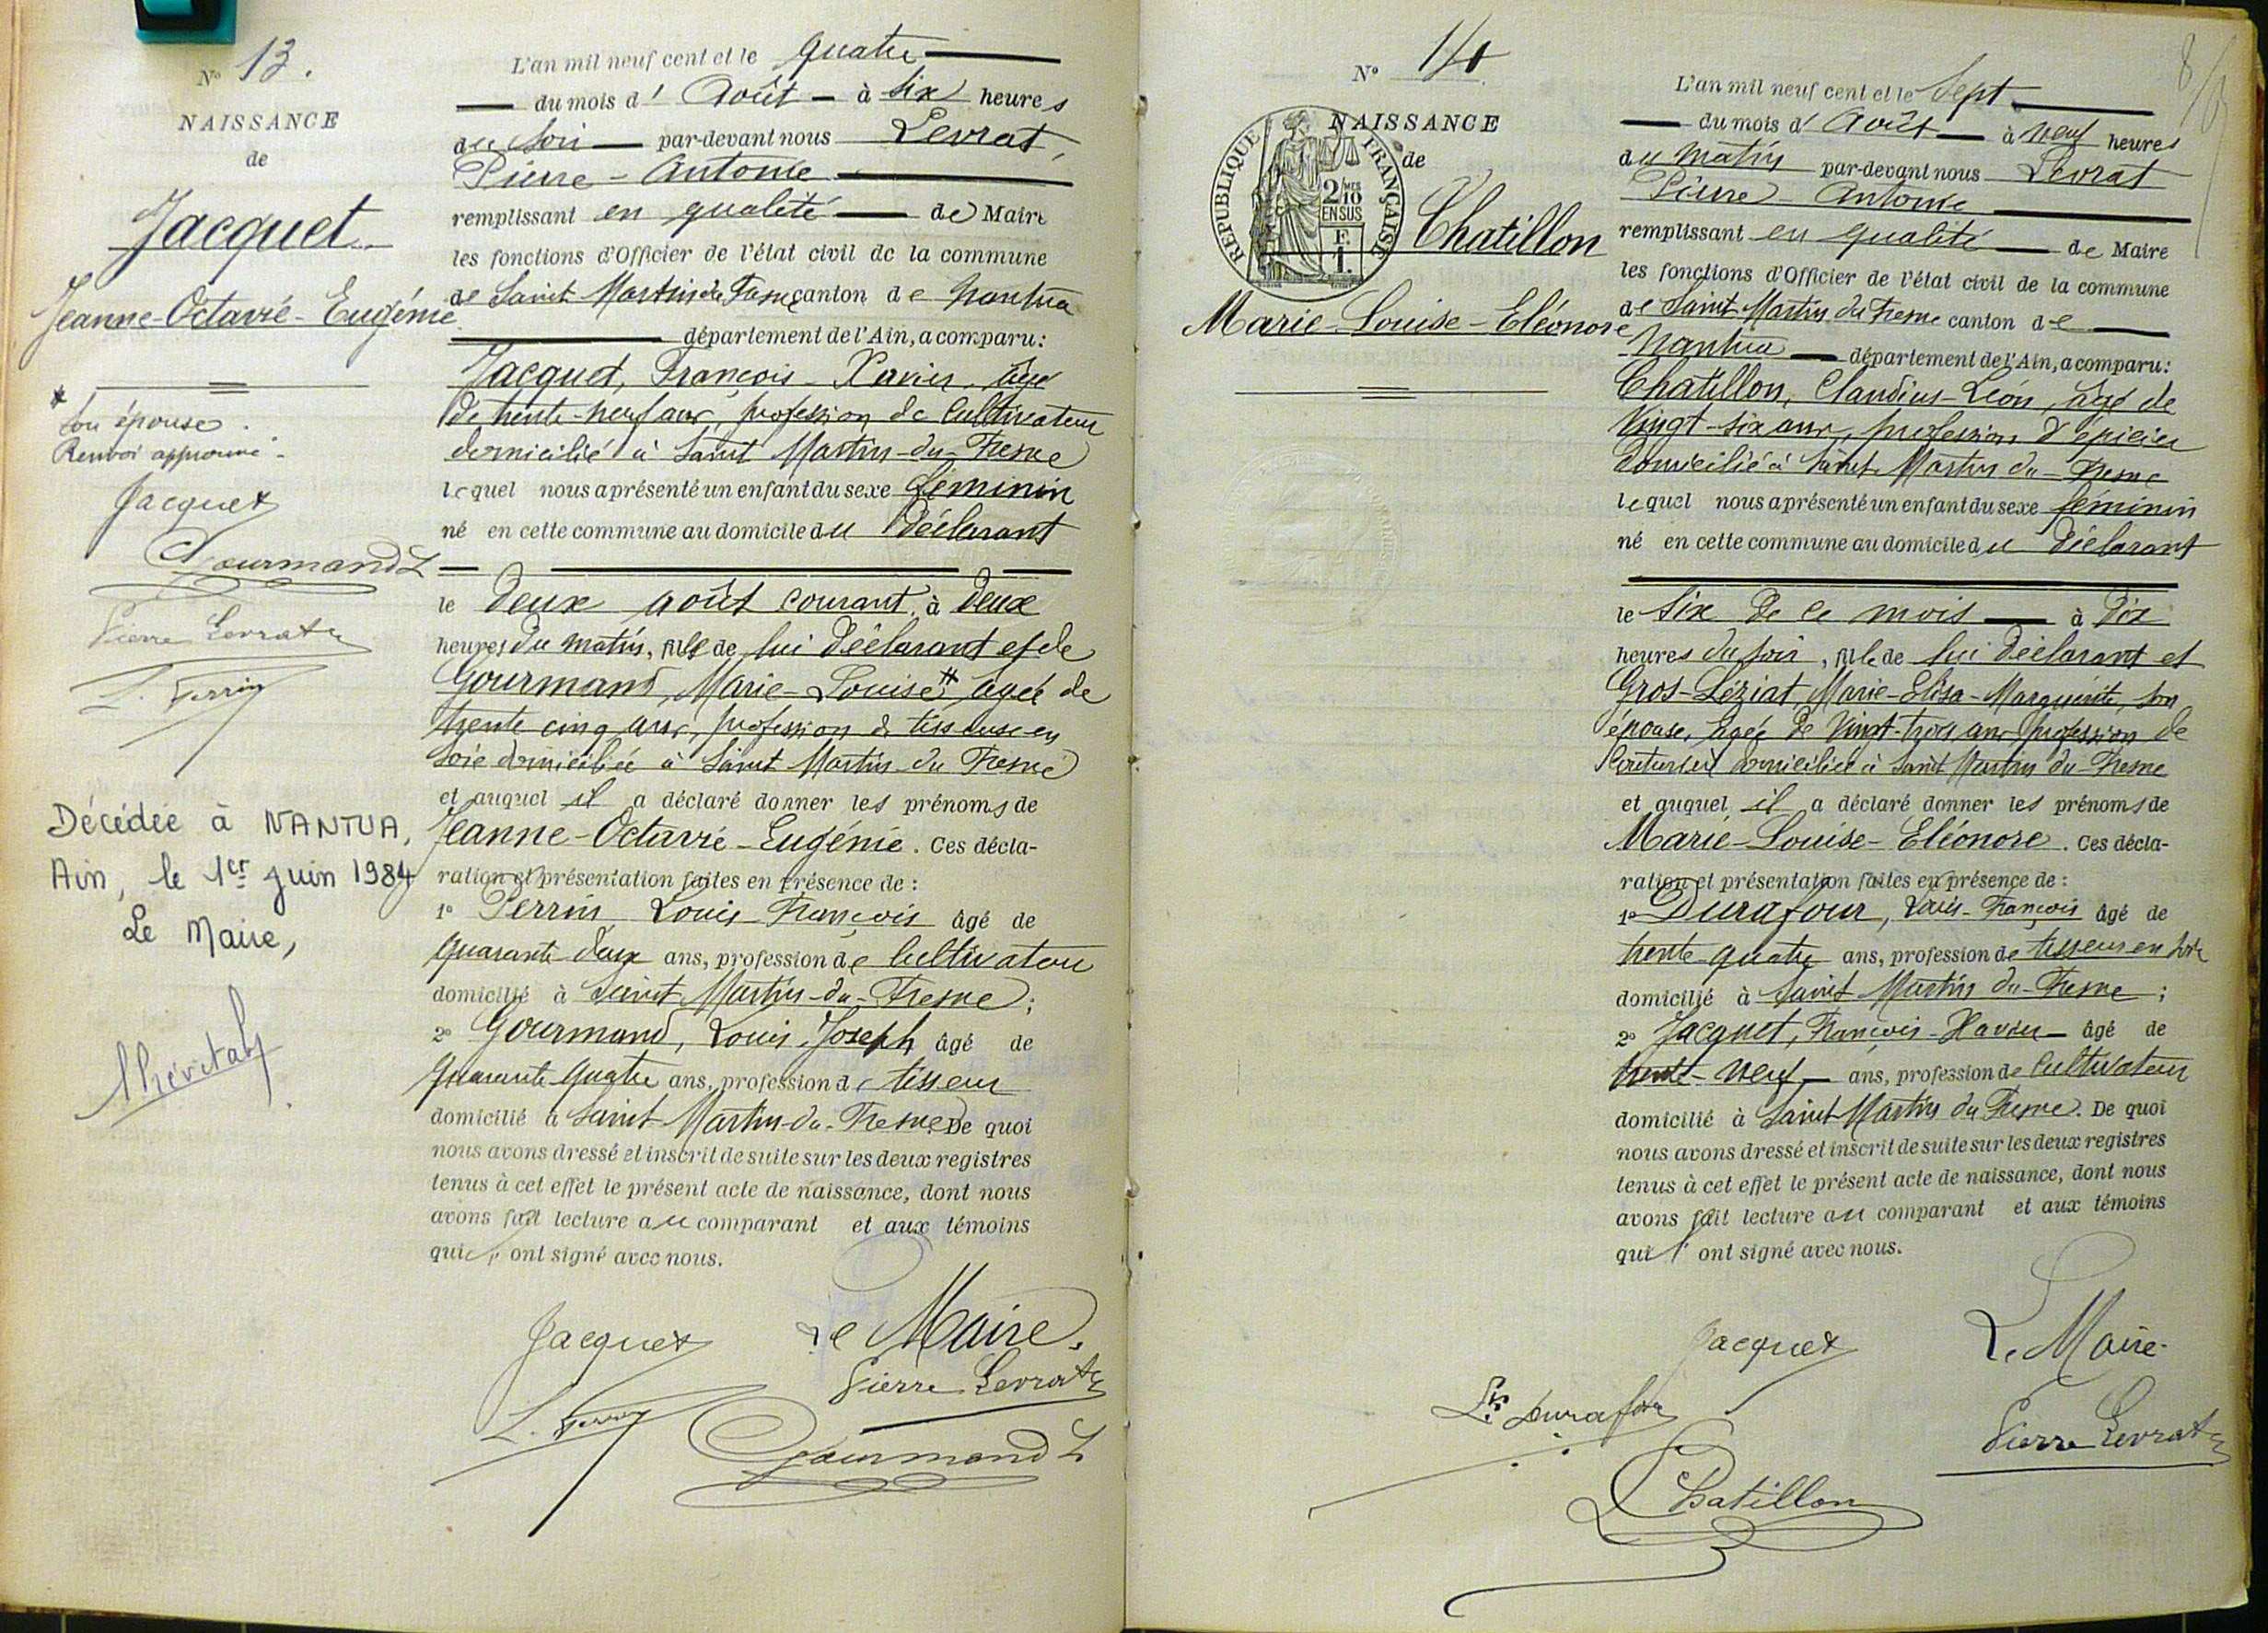 N° 13.
NAISSANCE
de
Jacquet
Jeanne-Octavie-Eugénie
* son épouse.
Renvoi approuvé.
Jacquet
Gourmand L
Pierre Levrat
L. Perrin
Décédée à NANTUA,
Ain, le 1er juin 1984
Le Maire,
L'an mil neuf cent et le quatre
du mois d'Août à six heures
du soir par-devant nous Levrat,
Pierre-Antoine
remplissant en qualité de Maire
les fonctions d'Officier de l'état civil de la commune
de Saint Martin du Fresne canton de Nantua
département de l'Ain, a comparu:
Jacquet, François-Xavier, âgé
de trente-neuf ans, profession de cultivateur
domicilié à Saint Martin-du-Fresne
lequel nous a présenté un enfant du sexe féminin
né en cette commune au domicile du déclarant
le deux août courant à deux
heures du matin, fille de lui déclarant et de
Gourmand, Marie-Louise * âgée de
trente cinq ans, profession de tisseuse en
soie domiciliée à Saint Martin-du Fresne
et auquel il a déclaré donner les prénoms de
Jeanne-Octavie-Eugénie. Ces décla-
ration et présentation faites en présence de :
1° Perrin Louis-François âgé de
quarante deux ans, profession de cultivateur
domicilié à Saint Martin-du-Fresne ;
2° Gourmand, Louis Joseph âgé de
quarante quatre ans, profession de tisseur
domicilié à Saint Martin-du-Fresne. De quoi
nous avons dressé et inscrit de suite sur les deux registres
tenus à cet effet le présent acte de naissance, dont nous
avons fait lecture au comparant et aux témoins
qui ont signé avec nous.
Jacquet
Le Maire.
Pierre Levrat
L. Perrin
Gourmand L
N° 14
NAISSANCE
de
REPUBLIQUE FRANÇAISE
2/10 MES
EN SUS
F.
1.
Chatillon
Marie-Louise-Eléonore
L'an mil neuf cent et le Sept
du mois d'Août à neuf heures
du matin par-devant nous Levrat
Pierre-Antoine
remplissant en qualité de Maire
les fonctions d'Officier de l'état civil de la commune
de Saint Martin du Fresne canton de
Nantua département de l'Ain, a comparu:
Chatillon, Claudius-Léon, âgé de
Vingt-six ans, profession d'épicier
domicilié à Saint Martin du-Fresne
lequel nous a présenté un enfant du sexe féminin
né en cette commune au domicile du déclarant
le six de ce mois à dix
heures du soir, fille de lui déclarant et
Gros-Léziat, Marie-Elisa-Marguerite, son
épouse, âgée de Vingt-trois ans profession de
Couturière domiciliée à Saint Martin du-Fresne
et auquel il a déclaré donner les prénoms de
Marie-Louise-Eléonore. Ces décla-
ration et présentation faites en présence de :
1° Durafour, Louis-François âgé de
trente-quatre ans, profession de tisseur en soie
domicilié à Saint Martin du-Fresne ;
2° Jacquet, François-Xavier âgé de
trente-neuf ans, profession de cultivateur
domicilié à Saint Martin du Fresne. De quoi
nous avons dressé et inscrit de suite sur les deux registres
tenus à cet effet le présent acte de naissance, dont nous
avons fait lecture au comparant et aux témoins
qui ont signé avec nous.
Jacquet
Le Maire
Ls Durafour
Pierre Levrat
Chatillon